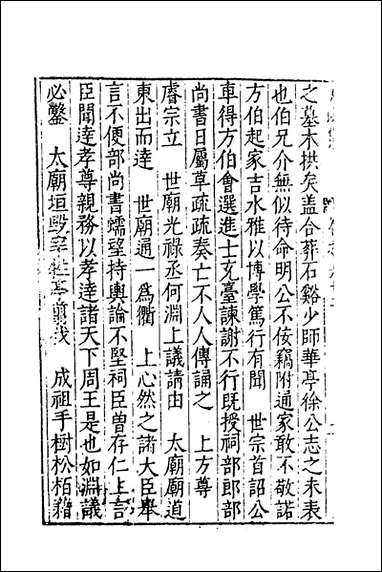 之墓木拱矣盖合葬石谿少師華亭徐公志之未表
也伯兄介無似待命明公不佞竊附通家敢不敬諾
方伯起家吉水雅以博學篤行有聞　世宗首詔公
車得方伯會選進士文臺諫謝不行既授祠部郎部
尚書日屬草疏疏奏亡不人人傳誦之　上方尊
睿宗立　世廟光祿丞何淵上議請由　太廟廟道
東出而達　世廟通一爲衢　上心然之諸大臣舉
言不便部尚書蠕望持輿論不堅祠臣曾存仁上言
臣聞達孝尊親務以孝達諸天下周王是也如淵議
必鑿　太廟垣毀　成祖手樹松栢